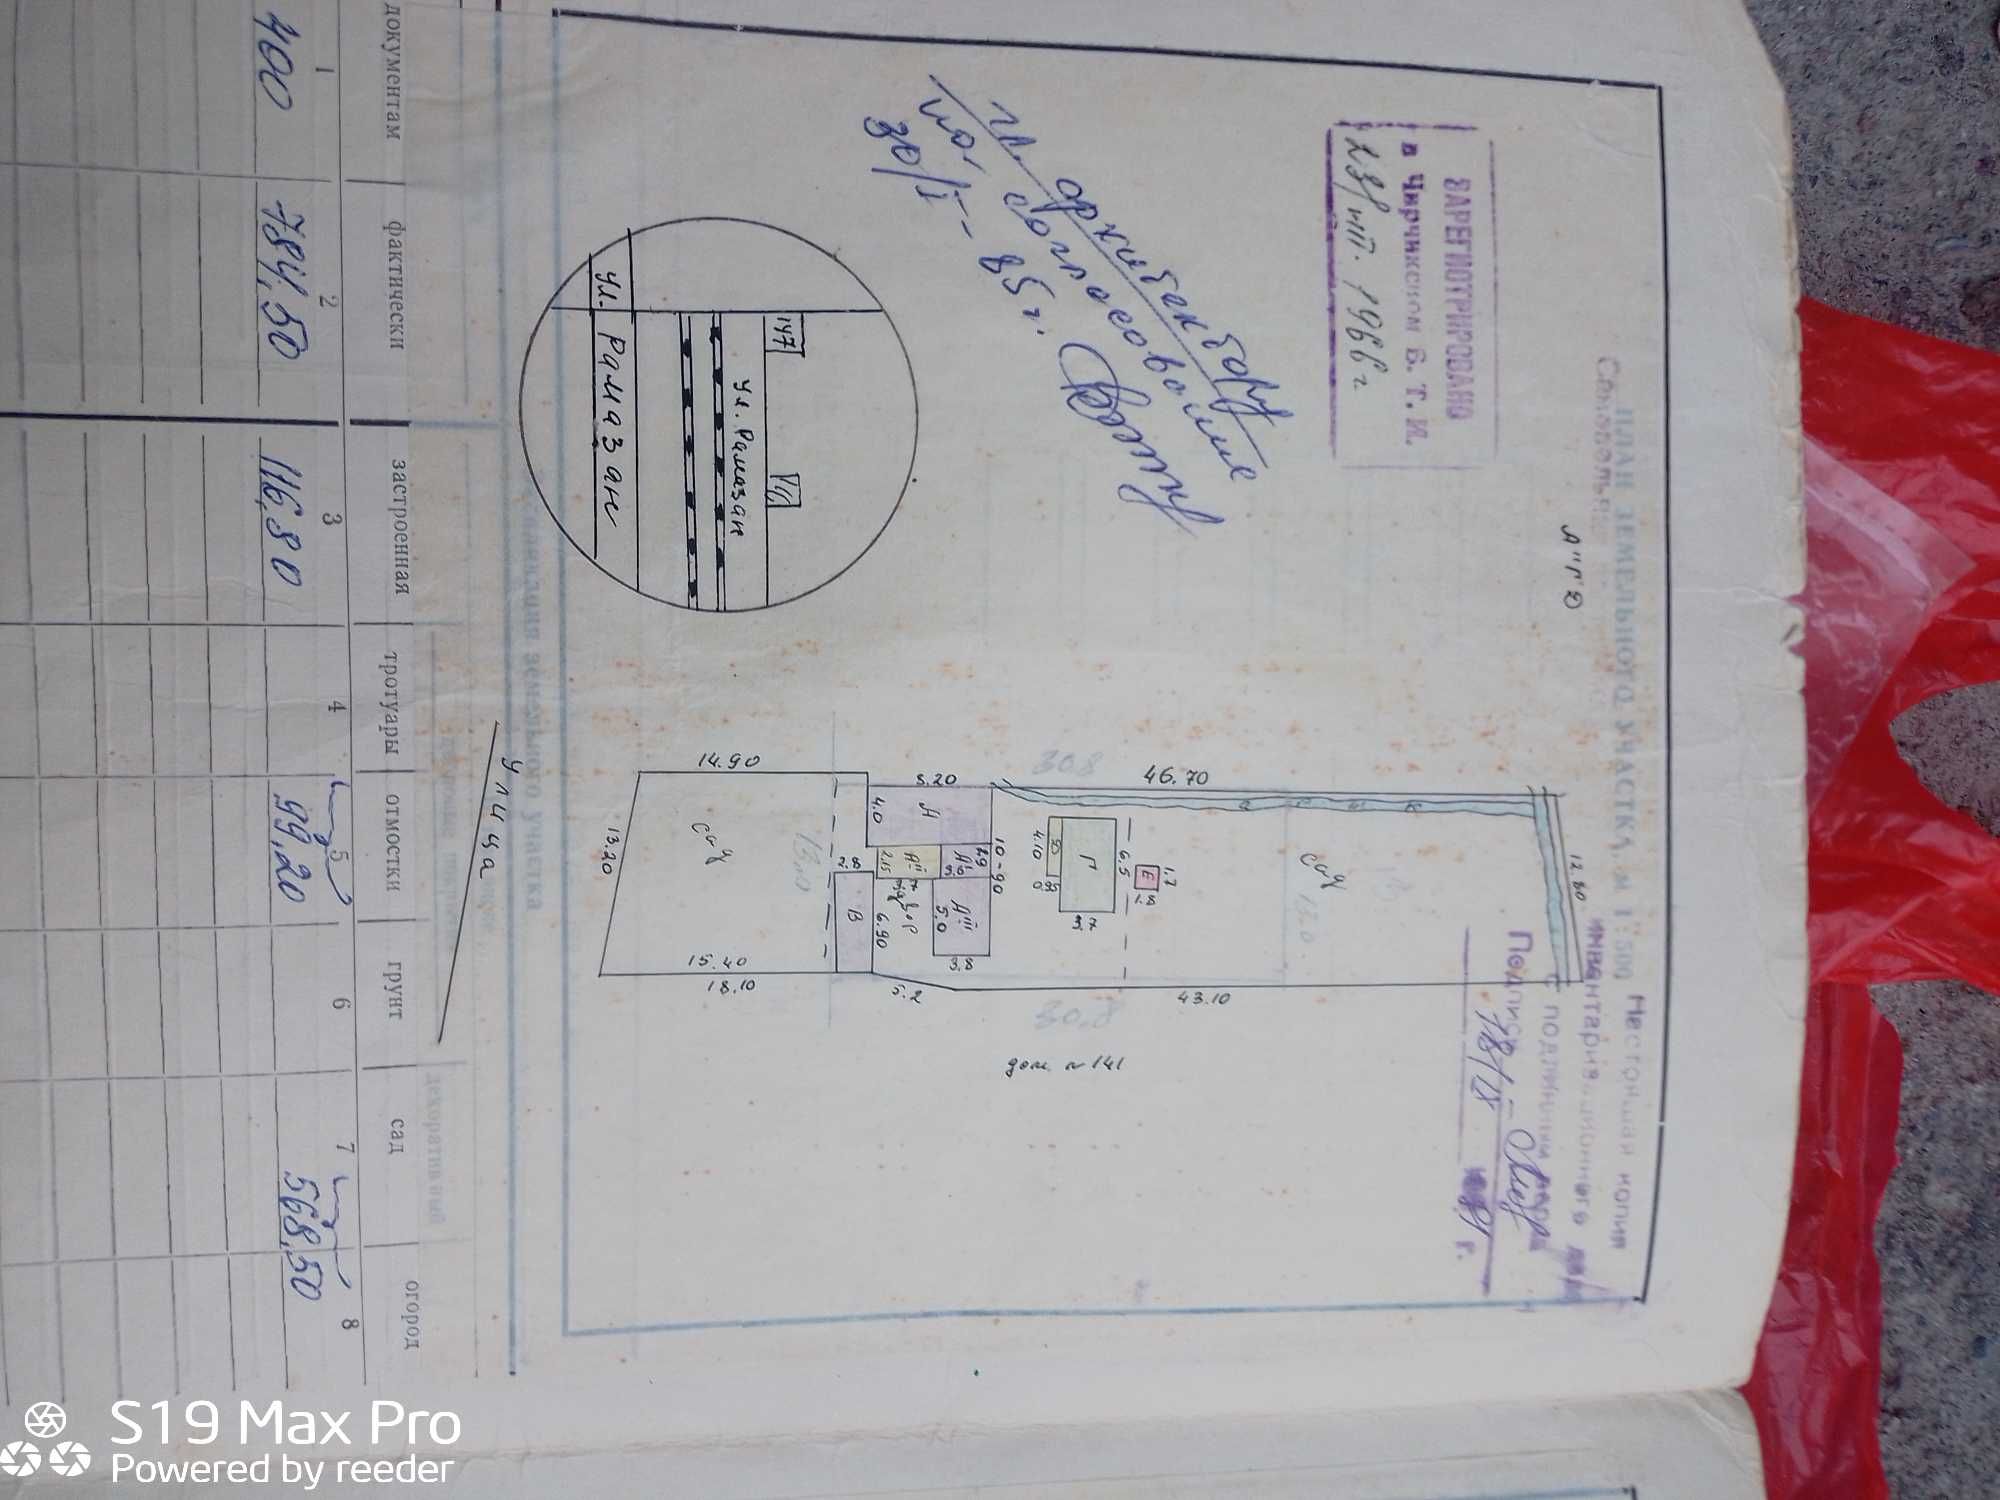 ПЛАН ЗЕМЕЛЬНОГО УЧАСТКА М 1:500
Настоящая копия
инвентаризационного дела
с подлинным верна
Подпись
18/IX
г.
ЗАРЕГИСТРИРОВАНО
в Чирчикском Б. Т. И.
23/VIII. 1966 г
гл. архитектор
согласование
30/I - 85 г.
147
ул. Рамазан
ул. Рамазан
12.80
46.70
арык
сад
13.0.
43.10
Е
1.7
1.8
Г
6.5
3.7
4.10
0.95
308
308
дом N 141
8.20
А
4.0
10-90
А I
А II
2.15
А III
5.0
3.8
двор
В
2.8
6.90
5.2
14.90
13.0
сад
13.20
15.40
18.10
Улица
Экспликация земельного участка
документам
фактически
застроенная
тротуары
отмостки
грунт
сад
огород
декоративный
1
2
3
4
5
6
7
8
400
784,50
116,80
99,20
568,50
S19 Max Pro
Powered by reeder